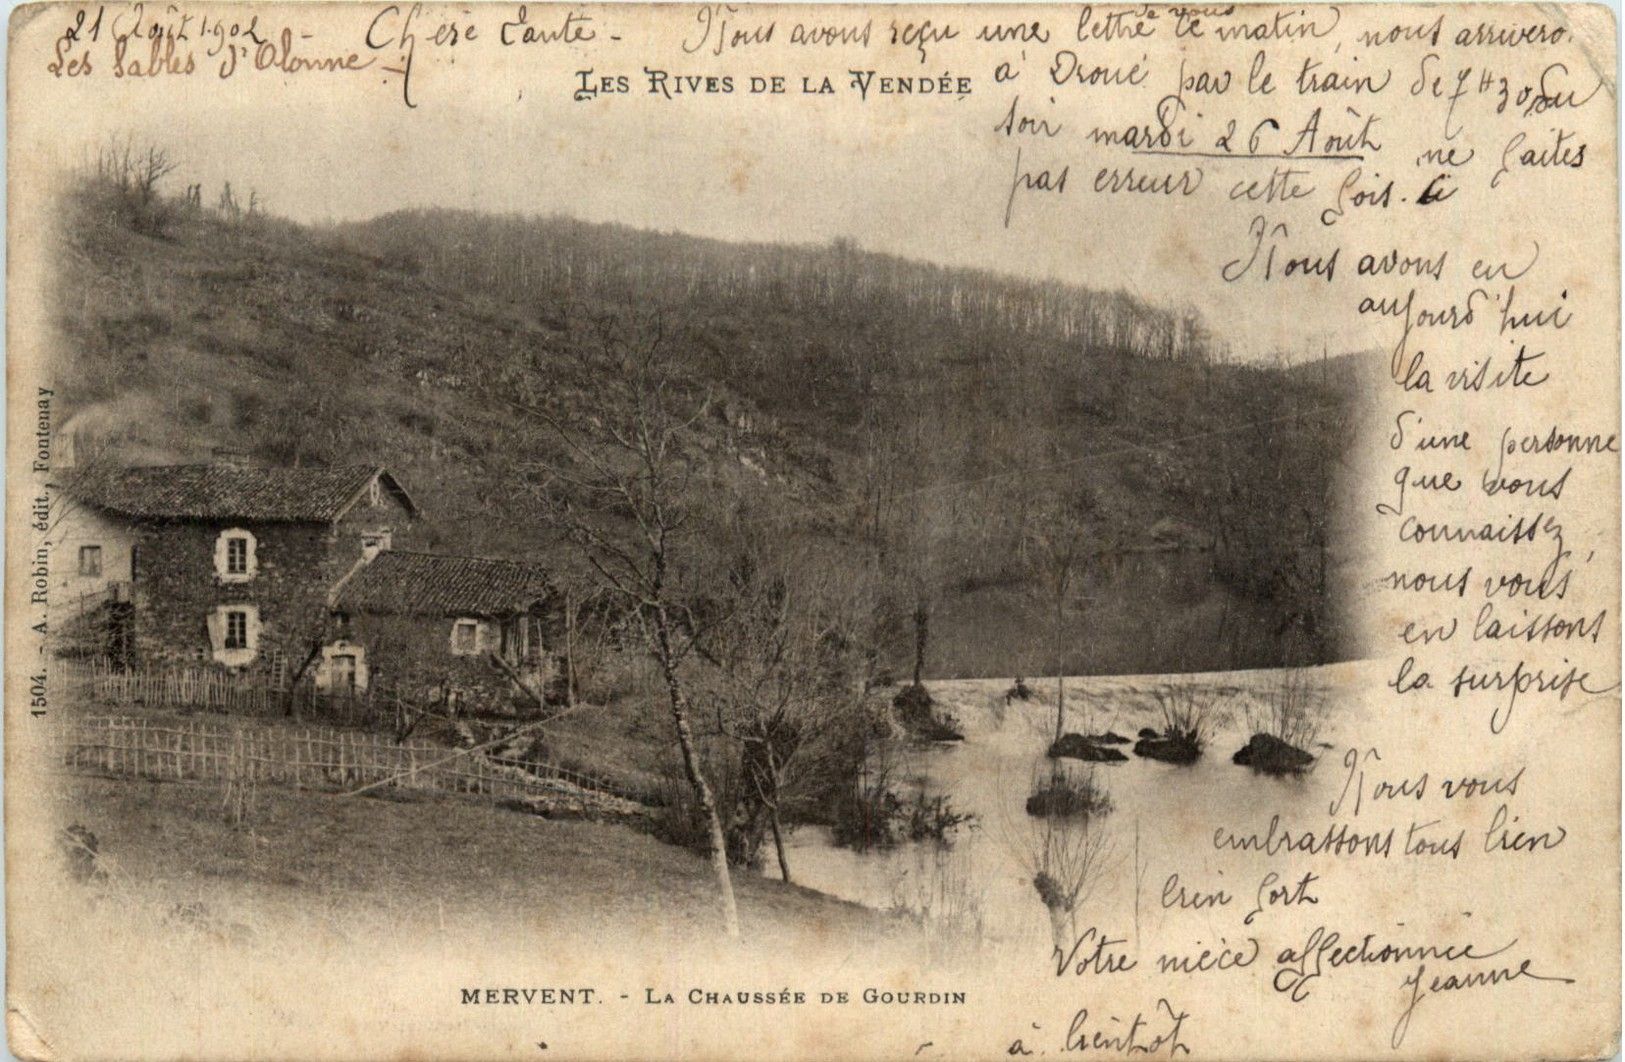 21 Août 1902 - Chère Tante - Nous avons reçu une lettre de vous ce matin, nous arrivero.
Les Sables d'Olonne -
LES RIVES DE LA VENDÉE
à Droué par le train de 7H30 du
soir mardi 26 Août ne faites
pas erreur cette fois.
Nous avons eu
aujourd'hui
la visite
d'une personne
que vous
connaissez,
nous vous
en laissons
la surprise
Nous vous
embrassons tous bien
bien fort
Votre nièce affectionnée
Jeanne
à bientôt
1504. - A. Robin, édit., Fontenay
MERVENT. - LA CHAUSSÉE DE GOURDIN